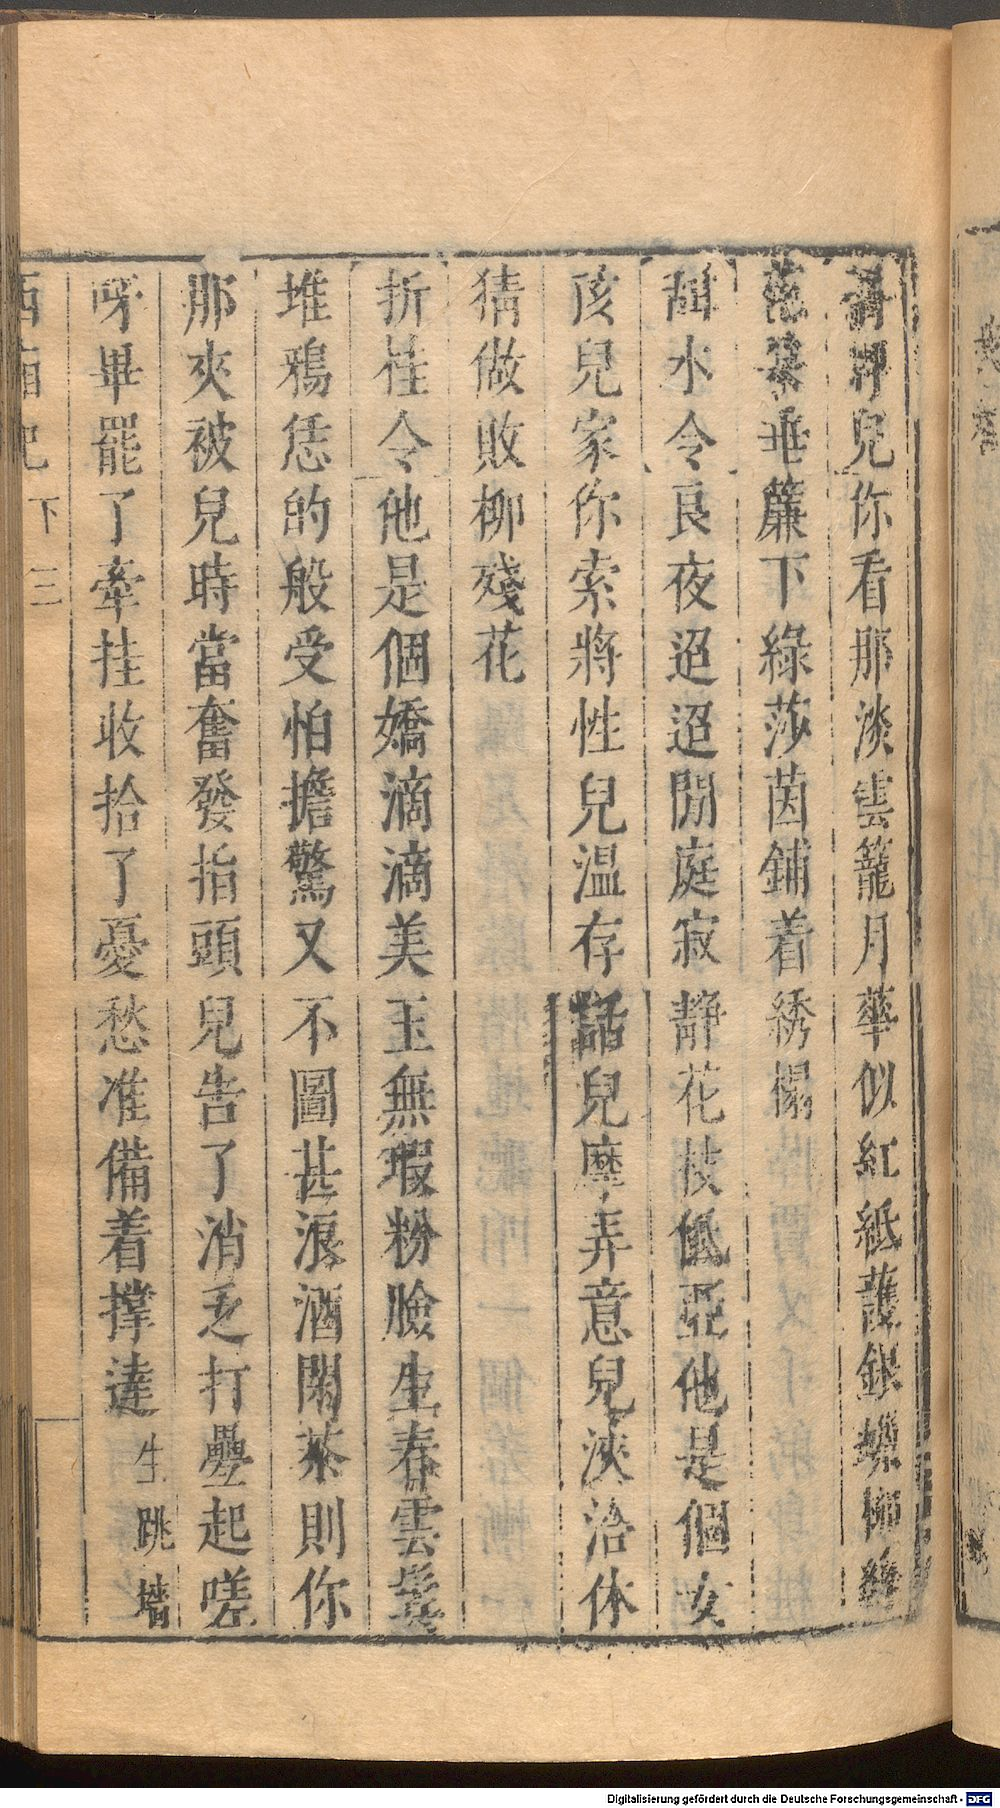 喬牌兒你看那淡雲籠月華似紅紙護銀蠟柳絲
花朵垂簾下綠莎茵鋪着綉榻
甜水令良夜迢迢閒庭寂靜花枝低亞他是個女
孩兒家你索將性兒温存話兒摩弄意兒浹洽休
猜做敗柳殘花
折桂令他是個嬌滴滴美玉無瑕粉臉生春雲鬢
堆鴉恁的般受怕擔驚又不圖甚浪酒閑茶則你
那夾被兒時當奮發指頭兒告了消乏打疊起嗟
呀畢罷了牽挂收拾了憂愁准備着撑達生跳墻
西廂記 下 三
Digitalisierung gefördert durch die Deutsche Forschungsgemeinschaft - DFG